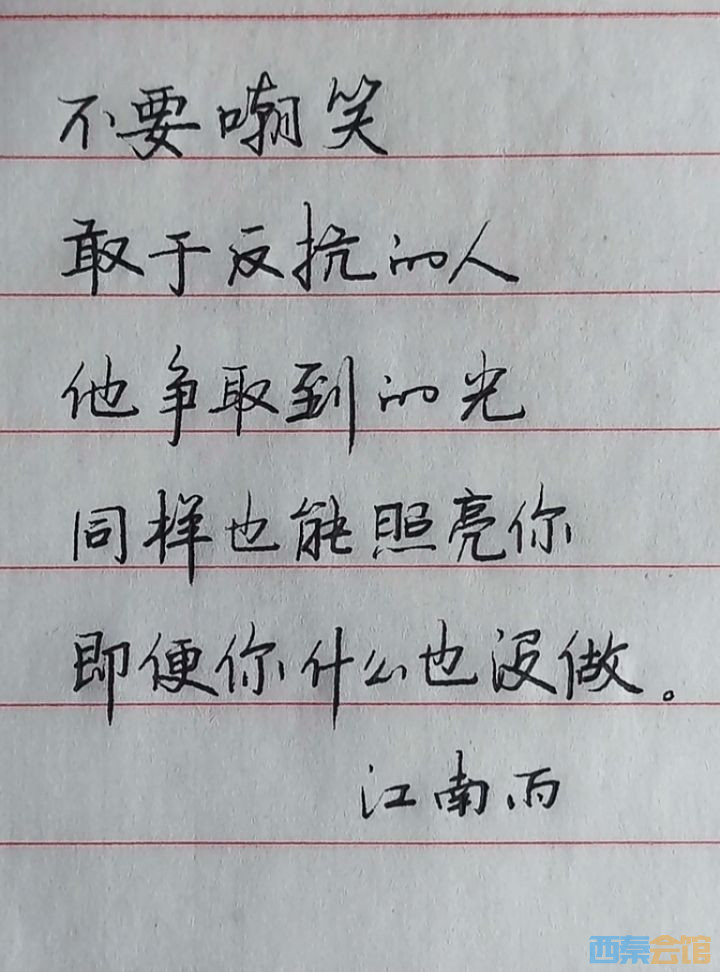 不要嘲笑
敢于反抗的人
他争取到的光
同样也能照亮你
即便你什么也没做。
江南雨
西秦会馆